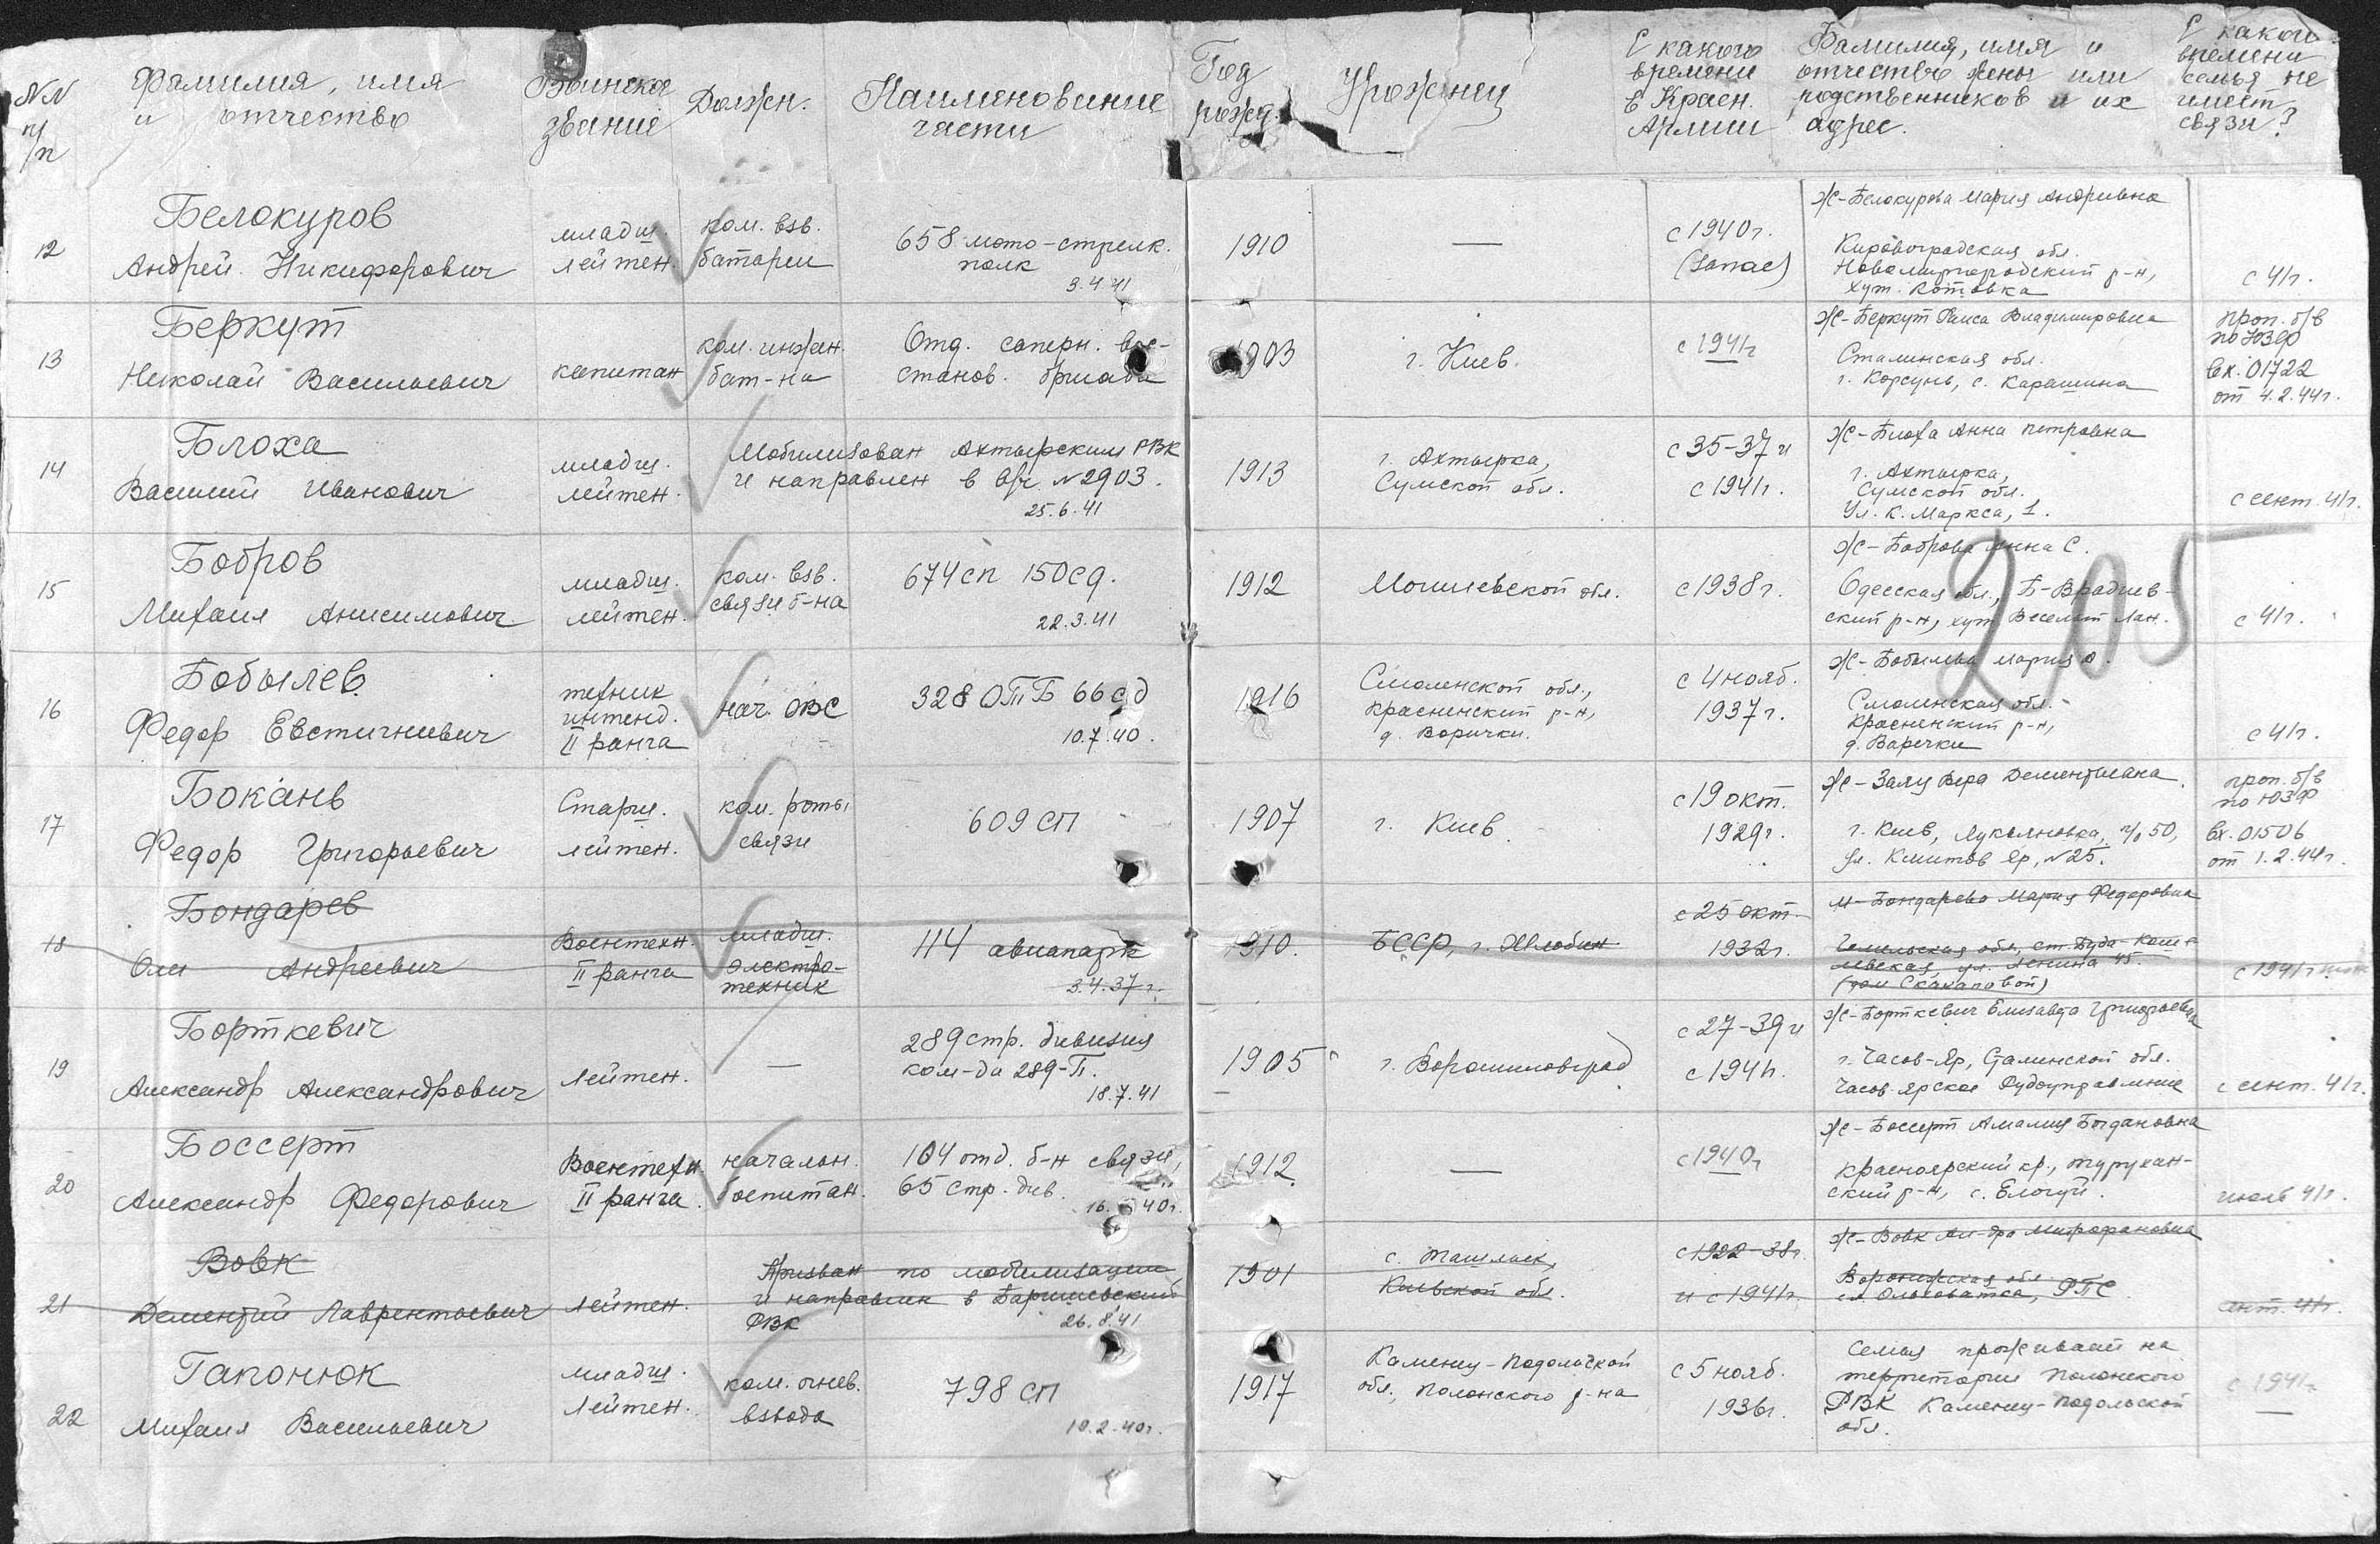 NN п/п
Фамилия, имя и отчество
звание
Должн.
Наименование части
Год рожд.
Уроженец
С какого времени в Красн. Армии
Фамилия, имя и отчество жены или родственников и их адрес.
С какого времени семья не имеет связи?
12
Белокуров
Андрей Никифорович
младш.
лейтен.
ком. взв.
батареи
658 мото-стрелк.
полк
3.4.41
1910
—
с 1940 г.
(запас)
Ж-Белокурова Мария Андреевна
Кировоградская обл.
Новомиргородский р-н,
хут. Котовка
с 41г.
13
Беркут
Николай Васильевич
капитан
ком. инжен.
бат-на
Отд. саперн. вос-
станов.
1903
г. Киев.
с 1941г
Ж-Беркут Раиса Владимировна
Сталинская обл.
г. Корсунь, с. Карашина
проп. б/в
по ЮЗФ
вх. 01722
от 4.2.44г.
14
Блоха
Василий Иванович
младш.
лейтен.
Мобилизован Ахтырским РВК
и направлен в в/ч N2903.
25.6.41
1913
г. Ахтырка,
Сумской обл.
с 35-37 и
с 1941г.
Ж-Блоха Анна Петровна
г. Ахтырка,
Сумской обл.
Ул. К. Маркса, 1.
с сент. 41г.
15
Бобров
Михаил Анисимович
младш.
лейтен.
ком. взв.
связи б-на
674 сп 150 сд.
22.3.41
1912
Могилевской обл.
с 1938 г.
Ж-Боброва Анна С.
Одесская обл., Б-Врадиев-
ский р-н, хут. Веселый Лан.
с 41г.
205
16
Бобылев
Федор Евстигниевич
техник
интенд.
II ранга
нач. ОВС
328 ОПТБ 66 сд
10.7.40.
1916
Смоленской обл.,
Красненский р-н,
д. Ворички.
с 4 нояб.
1937 г.
Ж-Бобылева Мария
Смоленская обл.
Красненский р-н,
д. Варечки
с 41г.
17
Бокань
Федор Григорьевич
Старш.
лейтен.
ком. роты
связи
609 СП
1907
г. Киев
с 19 окт.
1929 г.
Ж- Вера Дементьевна
г. Киев, Лукьяновка, п/о 50,
Ул. Кмитов Яр, N25.
проп. б/в
по ЮЗФ
вх. 01506
от 1.2.44г.
18
Бондарев
Андреевич
Воентехн.
II ранга
младш.
электро-
техник
114 авиапарк
3.4.37г.
1910.
БССР, г. Жлобин
с 25 окт.
1932г.
м-Бондарева Мария Федоровна
Гомельская обл, ст. Буда-Коше-
левская, ул. Ленина 45.
с 1941г
19
Борткевич
Александр Александрович
лейтен.
—
289 стр. дивизия
ком-да 289-П.
18.7.41
1905
г. Ворошиловград
с 27-39 и
с 1941г.
Ж-Борткевич Елизавета Григорьевна
г. Часов-Яр, Сталинской обл.
Часов-Ярское Рудоуправление
с сент. 41г.
20
Боссерт
Александр Федорович
Воентехн.
II ранга.
начальн.
104 отд. б-н связи,
65 стр. див.
16. 40г.
1912
—
с 1940г
Ж-Боссерт Амалия Богдановна
Красноярский кр., Турухан-
ский р-н, с. Елогуй.
июль 41г.
21
Вовк
Дементий Лаврентьевич
лейтен.
Призван по мобилизации
и направлен в Барышевский
РВК
26.8.41
1901
с. Ташлык,
Киевской обл.
с 1922-38г.
и с 1941г.
Ж-Вовк Ал-дра Митрофановна
Воронежская обл.
сл. Ольховатка, РПС
сент. 41г.
22
Гапонюк
Михаил Васильевич
младш.
лейтен.
ком. огнев.
взвода
798 СП
19.2.40г.
1917
Каменец-Подольской
обл., Полонского р-на
с 5 нояб.
1936г.
Семья проживает на
территории Полонского
РВК Каменец-Подольской
обл.
с 1941г
—